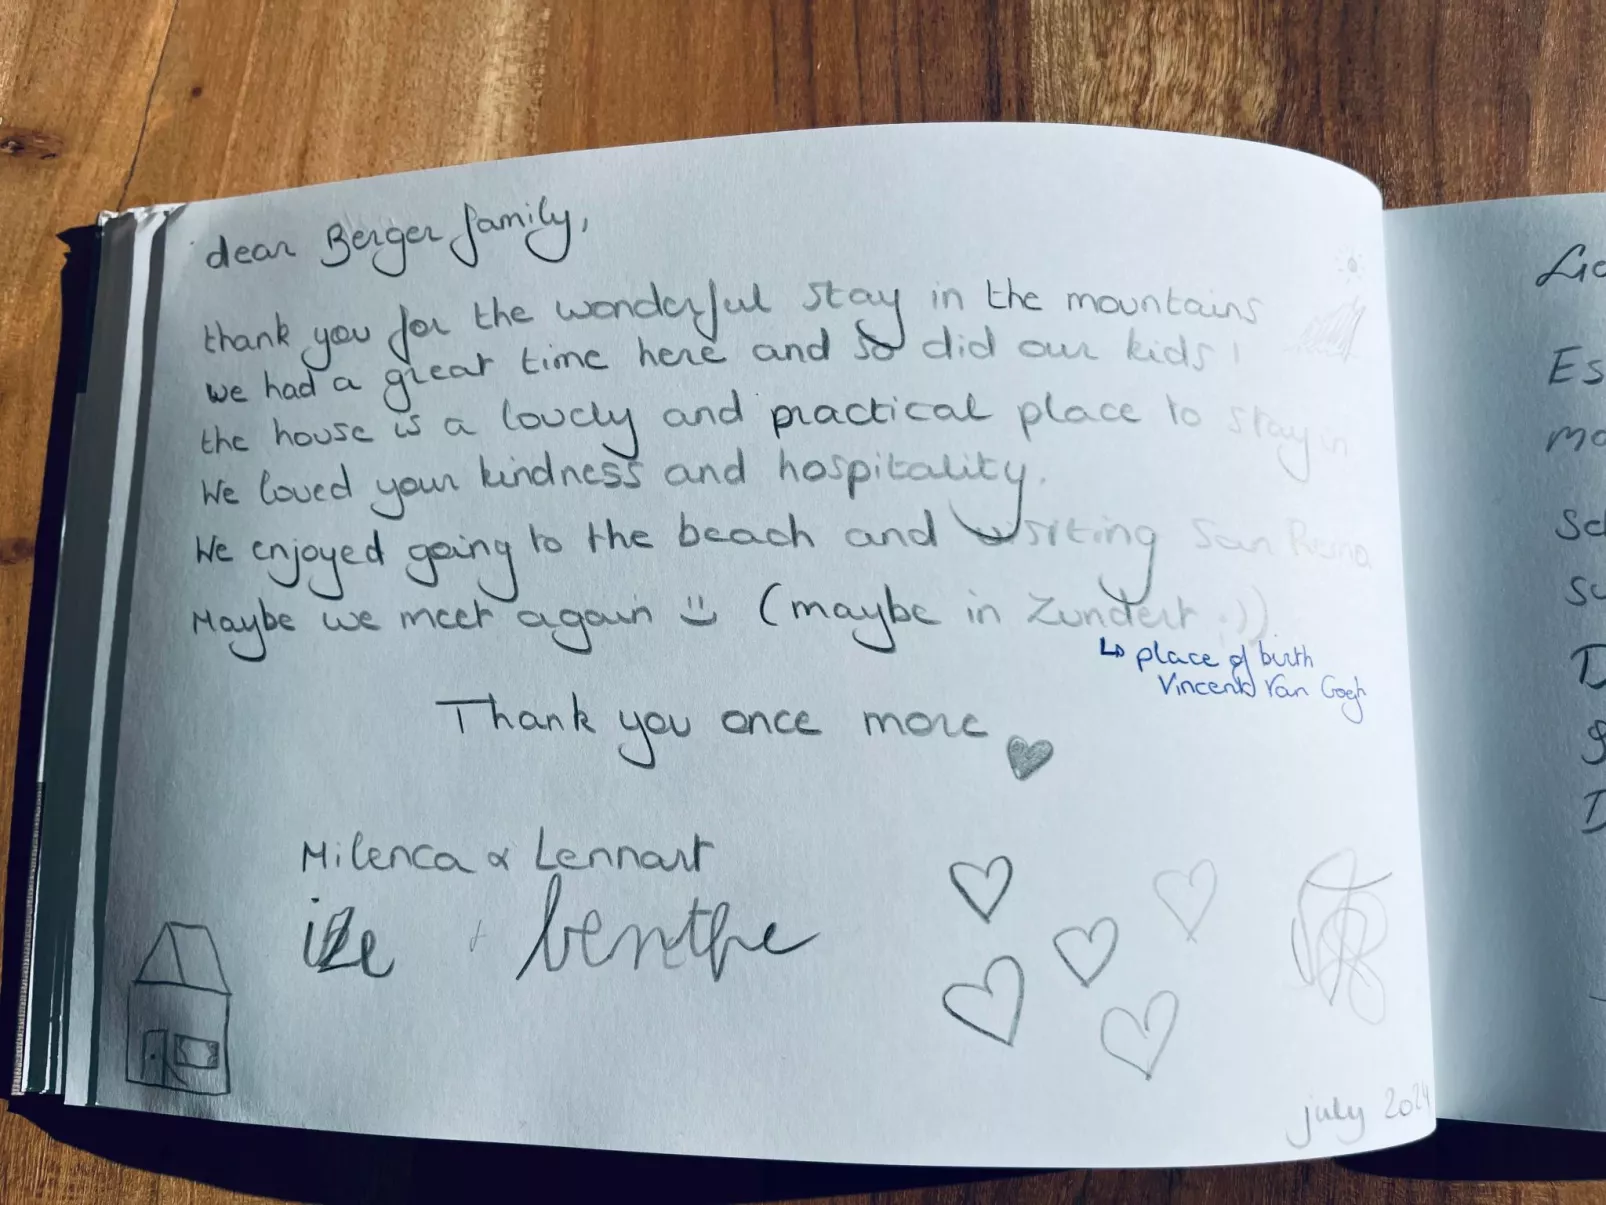 dear Berger family,
thank you for the wonderful stay in the mountains
we had a great time here and so did our kids!
the house is a lovely and practical place to stay in
We loved your kindness and hospitality.
We enjoyed going to the beach and visiting San Remo
Maybe we meet again :) (maybe in Zundert ;))
↳ place of birth
Vincent Van Gogh
Thank you once more ♥
Milenca & Lennart
+ benthe
july 2024